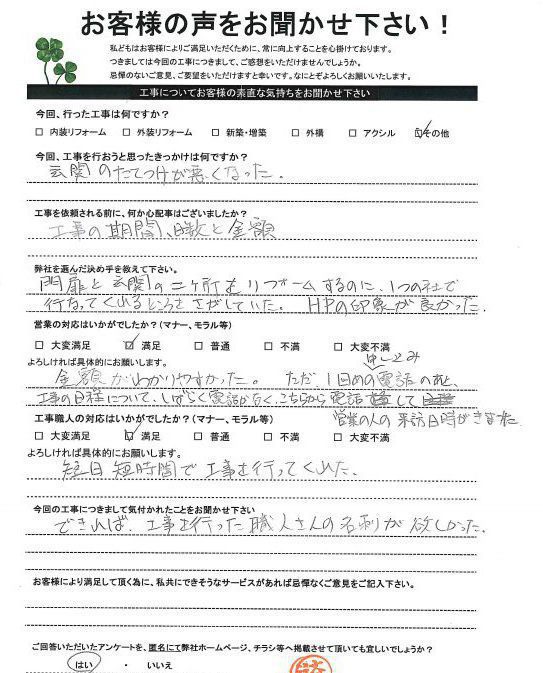 お客様の声をお聞かせ下さい！
私どもはお客様によりご満足いただくために、常に向上することを心掛けております。
つきましては今回の工事につきまして、ご感想をいただけませんでしょうか。
忌憚のないご意見、ご要望をいただけますと幸いです。なにとぞよろしくお願いいたします。
工事についてお客様の素直な気持ちをお聞かせ下さい
今回、行った工事は何ですか？
□ 内装リフォーム □ 外装リフォーム □ 新築・増築 □ 外構 □ アクシル ☑ その他
今回、工事を行おうと思ったきっかけは何ですか？
玄関のたてつけが悪くなった。
工事を依頼される前に、何か心配事はございましたか？
工事の期間、日数と金額
弊社を選んだ決め手を教えて下さい。
門扉と玄関の二ヶ所をリフォームするのに、1つの社で
行なってくれるところをさがしていた。HPの印象が良かった。
営業の対応はいかがでしたか？（マナー、モラル等）
□ 大変満足 ☑ 満足 □ 普通 □ 不満 □ 大変不満
よろしければ具体的にお願いします。
申し込み
金額がわかりやすかった。ただ、1回めの電話のあと、
工事の日程について、しばらく電話がなく、こちらから電話して
営業の人の来訪日時がきまった
工事職人の対応はいかがでしたか？（マナー、モラル等）
□ 大変満足 ☑ 満足 □ 普通 □ 不満 □ 大変不満
よろしければ具体的にお願いします。
短日短時間で工事を行ってくれた。
今回の工事につきまして気付かれたことをお聞かせ下さい
できれば、工事を行った職人さんの名刺が欲しかった。
お客様により満足して頂く為に、私共にできそうなサービスがあれば忌憚なくご意見をご記入下さい。
ご回答いただいたアンケートを、匿名にて弊社ホームページ、チラシ等へ掲載させて頂いても宜しいでしょうか？
はい ・ いいえ